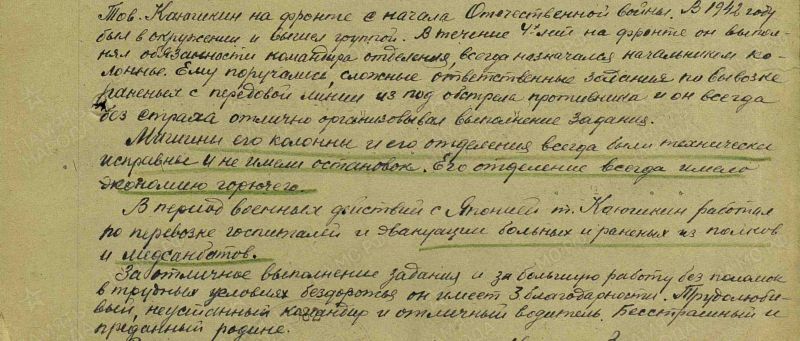 Тов. Каюшкин на фронте с начала Отечественной войны. В 1942 году
был в окружении и вышел группой. В течение 4х лет на фронте он выпол-
нял обязанности командира отделения, всегда назначался начальником ко-
лонны. Ему поручались сложные ответственные задания по вывозке
раненых с передовой линии из под обстрела противника и он всегда
без страха отлично организовывал выполнение задания.
Машины его колонны и его отделения всегда были технически
исправные и не имели остановок. Его отделение всегда имело
экономию горючего.
В период военных действий с Японией т. Каюшкин работал
по перевозке госпиталей и эвакуации больных и раненых из полков
и медсанбатов.
За отличное выполнение задания и за большую работу без поломок
в трудных условиях бездорожья он имеет 3 благодарности. Трудолюби-
вый, неустанный командир и отличный водитель. Бесстрашный и
преданный родине.